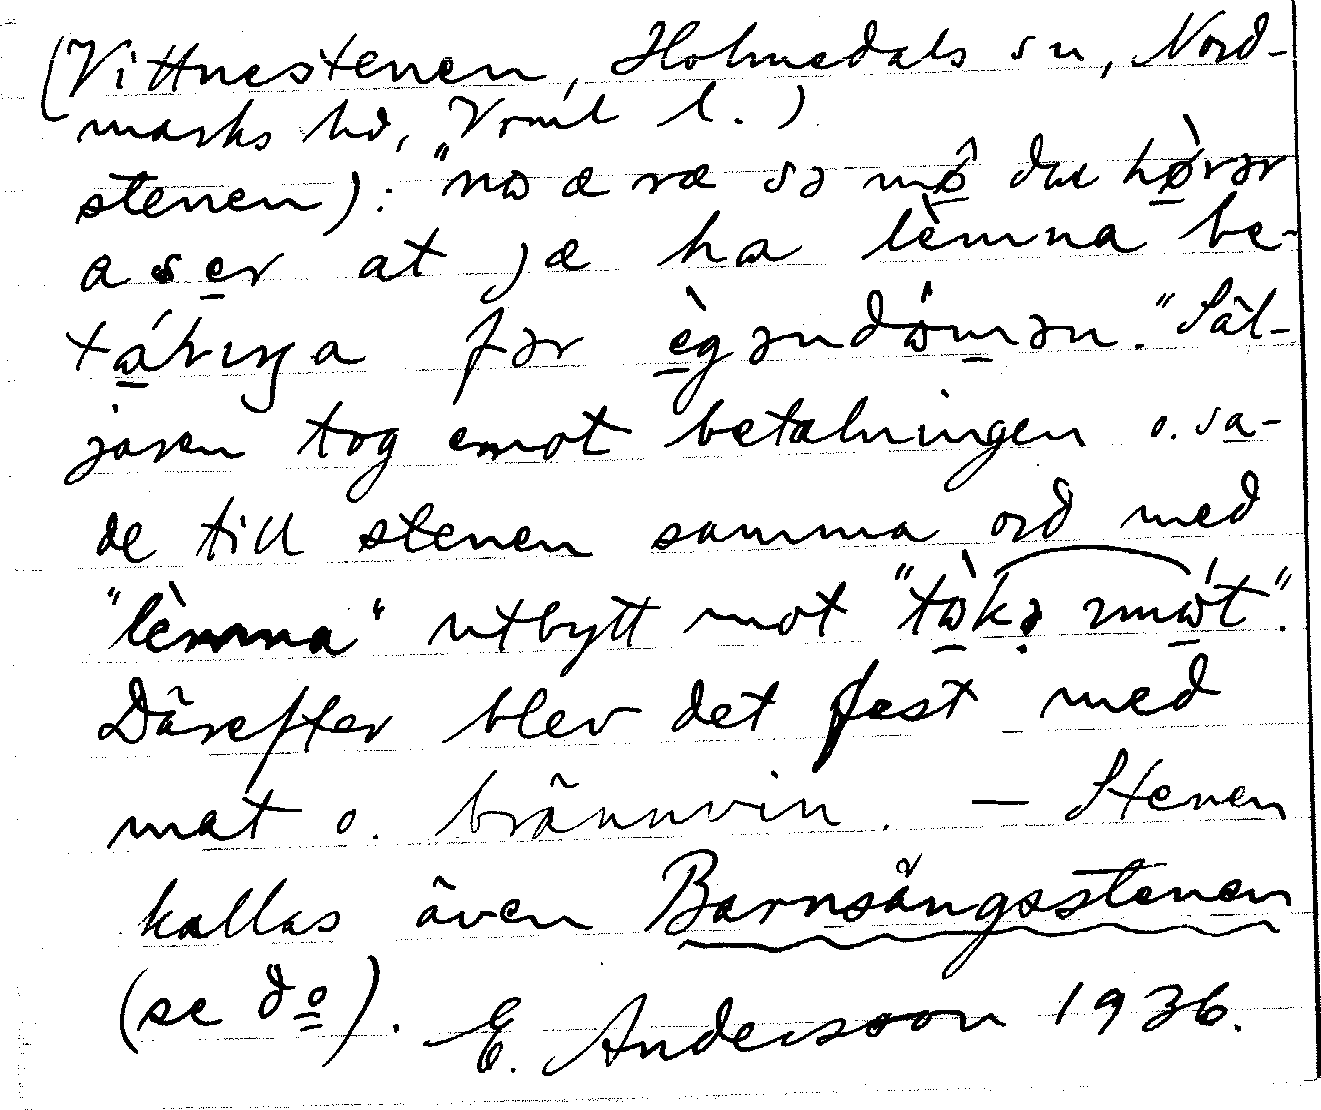 (Vittnestenen, Holmedals sn, Nord-
marks hd, Vrml l.)
stenen): "nɷ æ ræ sə mø̂ du hø̀rər
a ser at jæ ha lèmna be-
tálnɩŋa fər ègəndɷ́mən." Säl-
jaren tog emot betalningen o. sa-
de till stenen samma ord med
"lèmna" utbytt mot "tɷ̀kə ɩmɷ́t".
Därefter blev det fest med
mat o. brännvin. — Stenen
kallas även Barnsängsstenen
(se do). E. Andersson 1936.